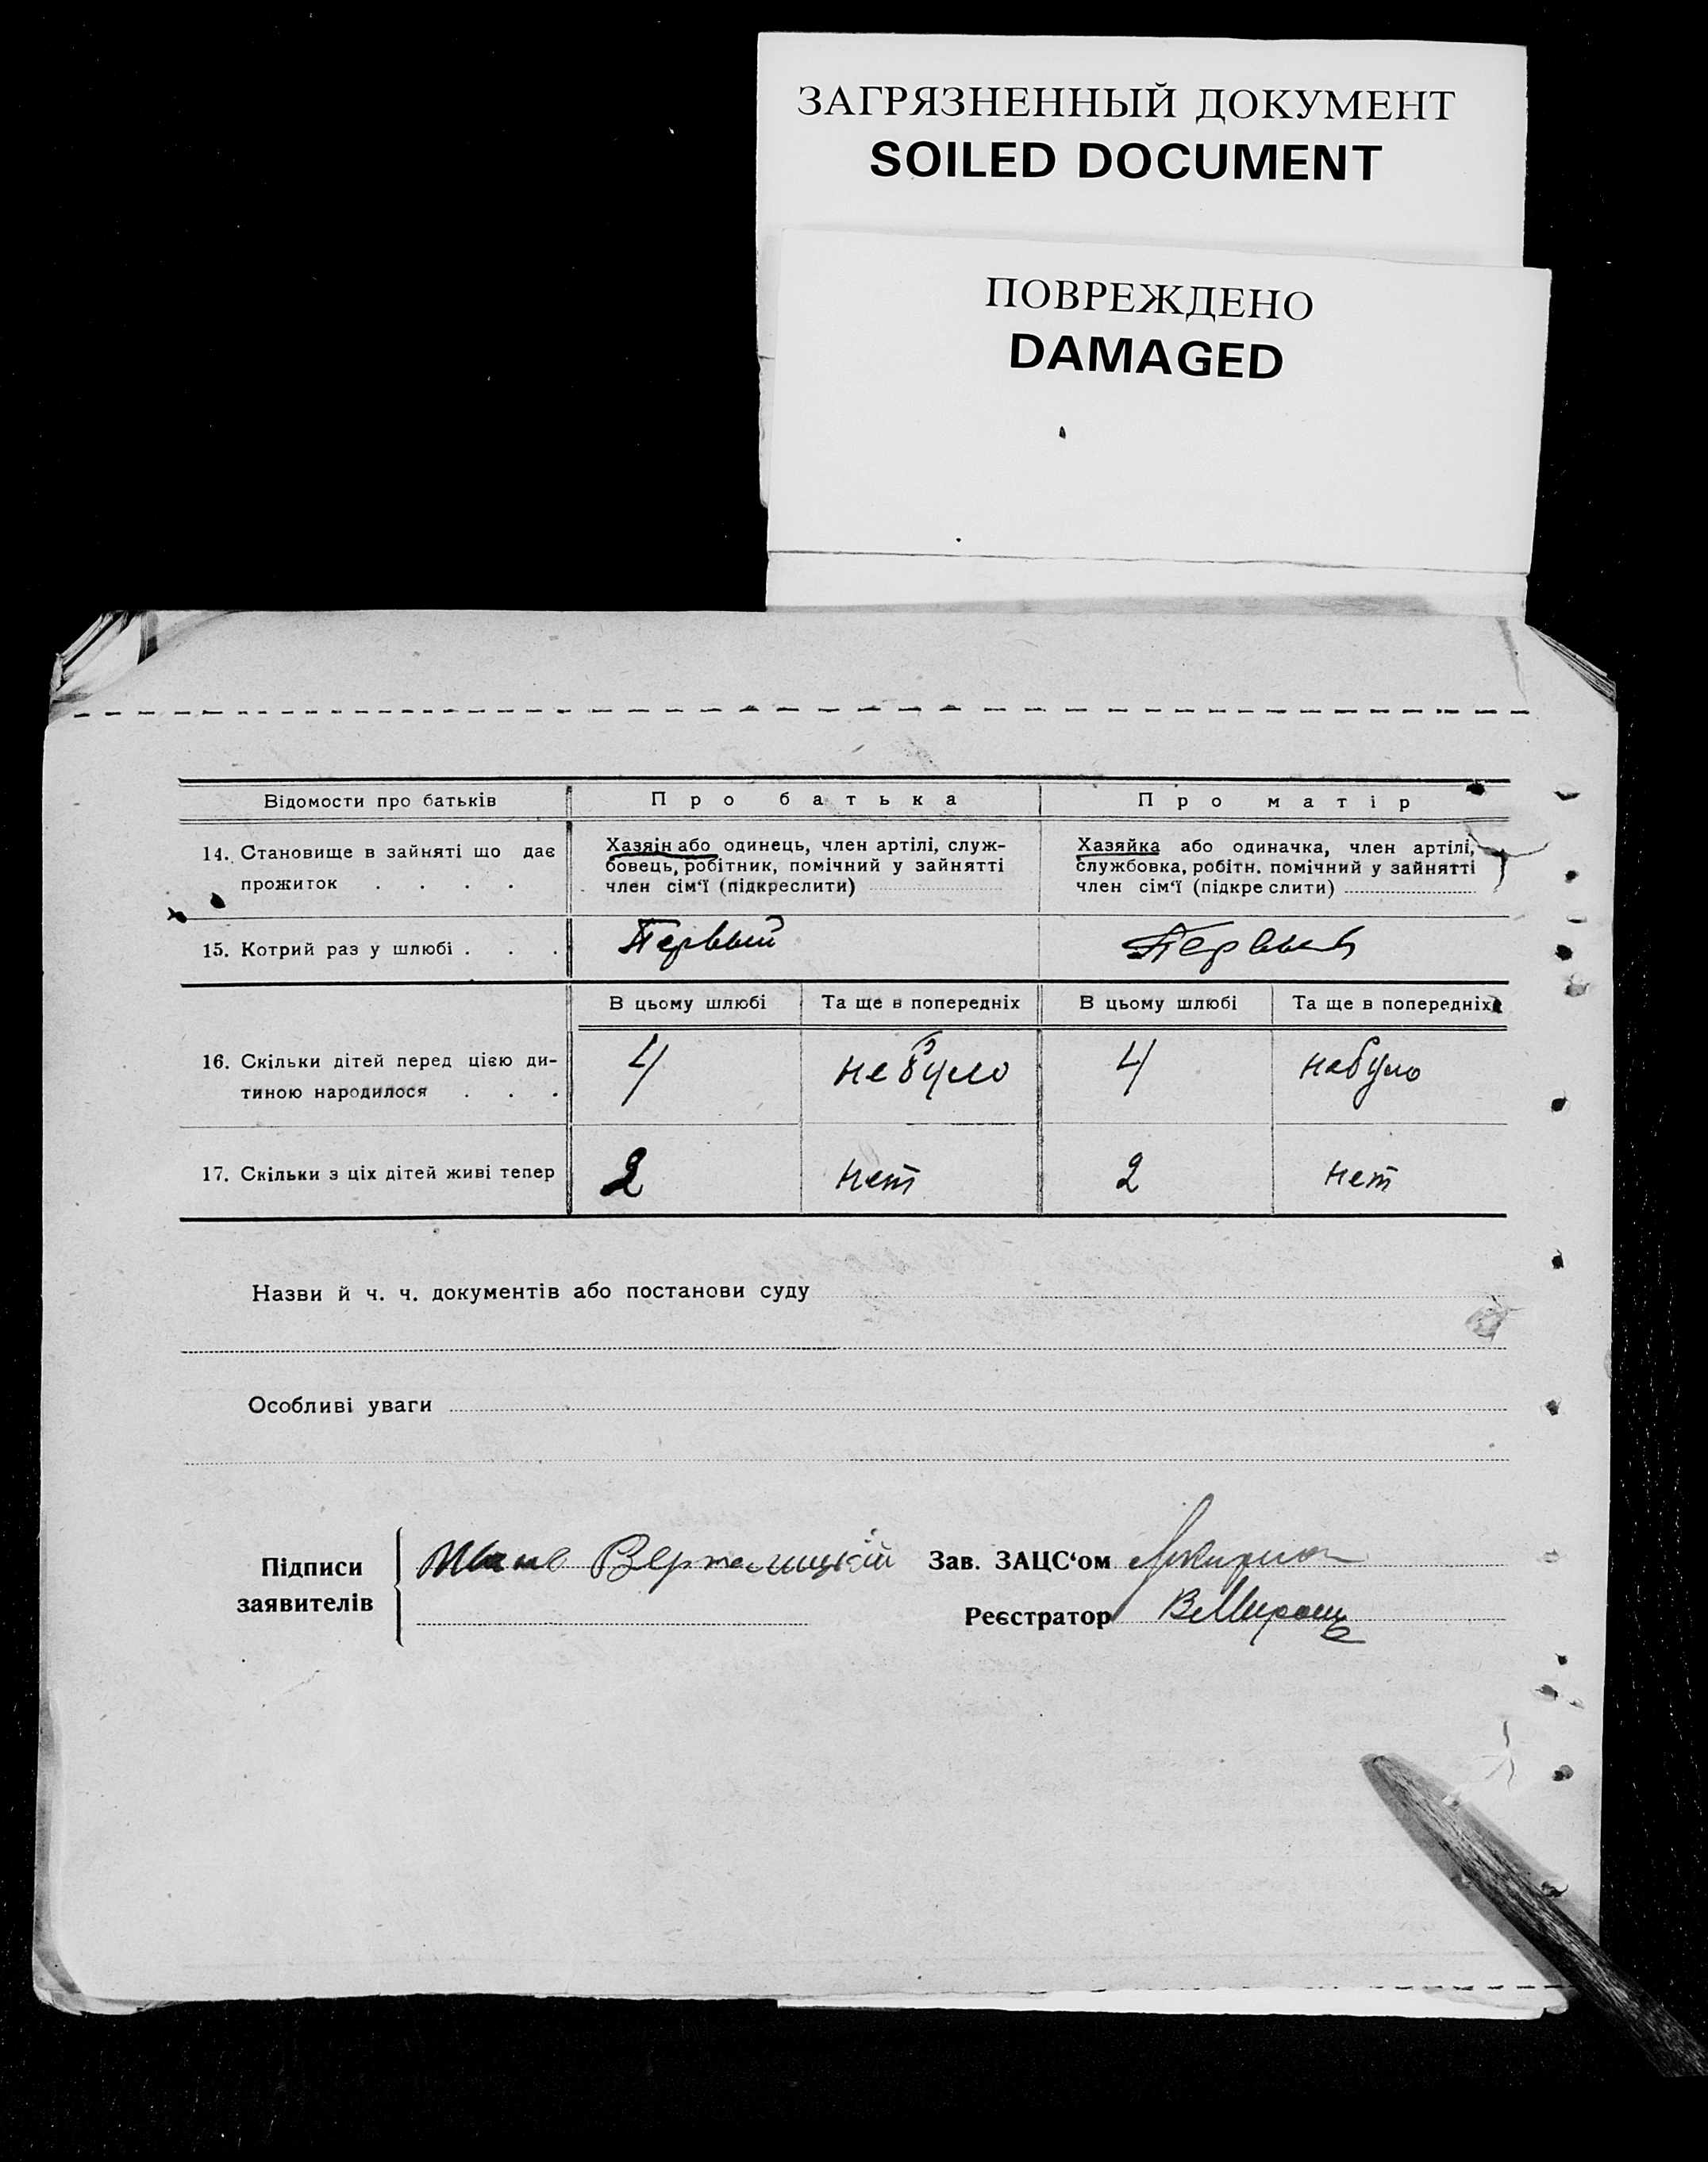 ЗАГРЯЗНЕННЫЙ ДОКУМЕНТ
SOILED DOCUMENT
ПОВРЕЖДЕНО
DAMAGED
Відомости про батьків Про батька Про матір
14. Становище в зайняті що дає прожиток . . . .
Хазяін або одинець, член артілі, служ-
бовець, робітник, помічний у зайнятті
член сім‘ї (підкреслити)
Хазяйка або одиначка, член артілі,
службовка, робітн. помічний у зайнятті
член сім‘ї (підкре слити)
15. Котрий раз у шлюбі . . . Первый Первый
В цьому шлюбі Та ще в попередніх В цьому шлюбі Та ще в попередніх
16. Скільки дітей перед цією ди-
тиною народилося . . . 4 небуло 4 небуло
17. Скільки з ціх дітей живі тепер 2 нет 2 нет
Назви й ч. ч. документів або постанови суду
Особливі уваги
Підписи
заявителів
Зав. ЗАЦС‘ом
Реєстратор